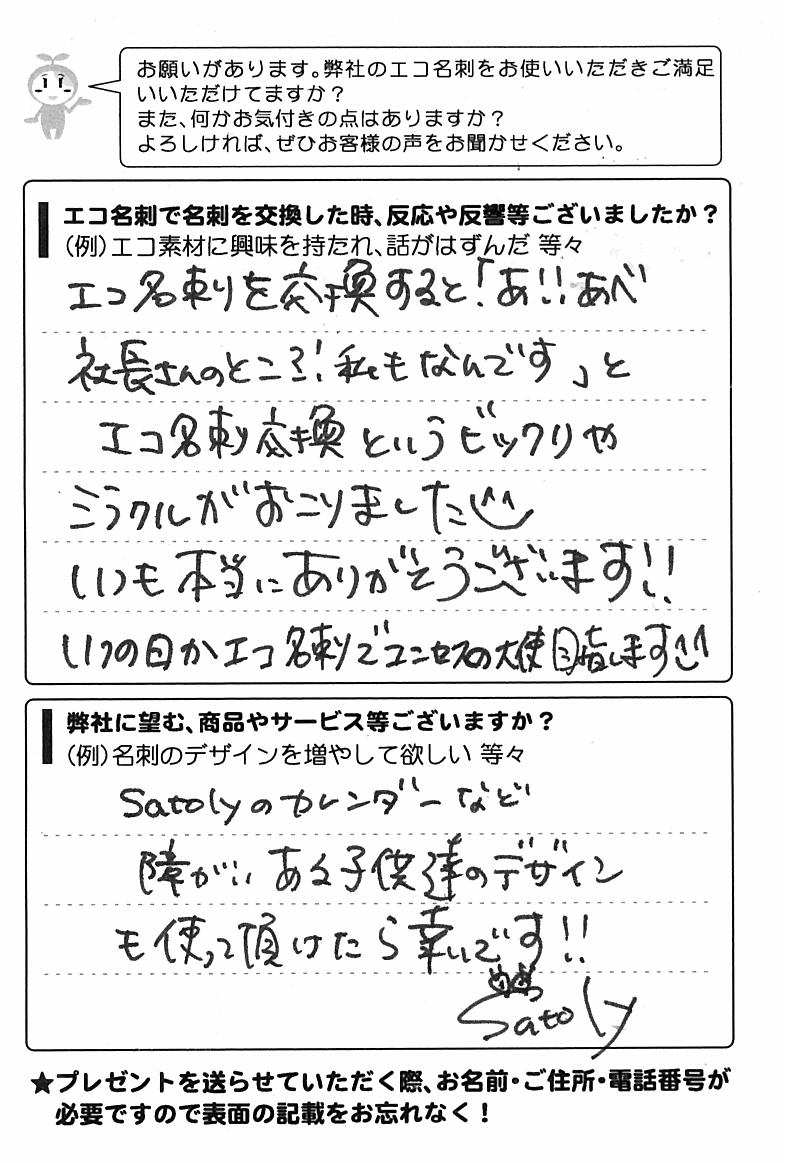 お願いがあります。弊社のエコ名刺をお使いいただきご満足
いいただけてますか？
また、何かお気付きの点はありますか？
よろしければ、ぜひお客様の声をお聞かせください。
エコ名刺で名刺を交換した時、反応や反響等ございましたか？
（例）エコ素材に興味を持たれ、話がはずんだ 等々
エコ名刺りを交換すると「あ!!あべ
社長さんのところ！私もなんです」と
エコ名刺交換というビックリや
ミラクルがおこりました
いつも本当にありがとうございます!!
いつの日かエコ名刺でユンセスの大使目指します
弊社に望む、商品やサービス等ございますか？
（例）名刺のデザインを増やして欲しい 等々
Satolyのカレンダーなど
障がいある子供達のデザイン
も使って頂けたら幸いです!!
Satoly
★プレゼントを送らせていただく際、お名前・ご住所・電話番号が
必要ですので表面の記載をお忘れなく！